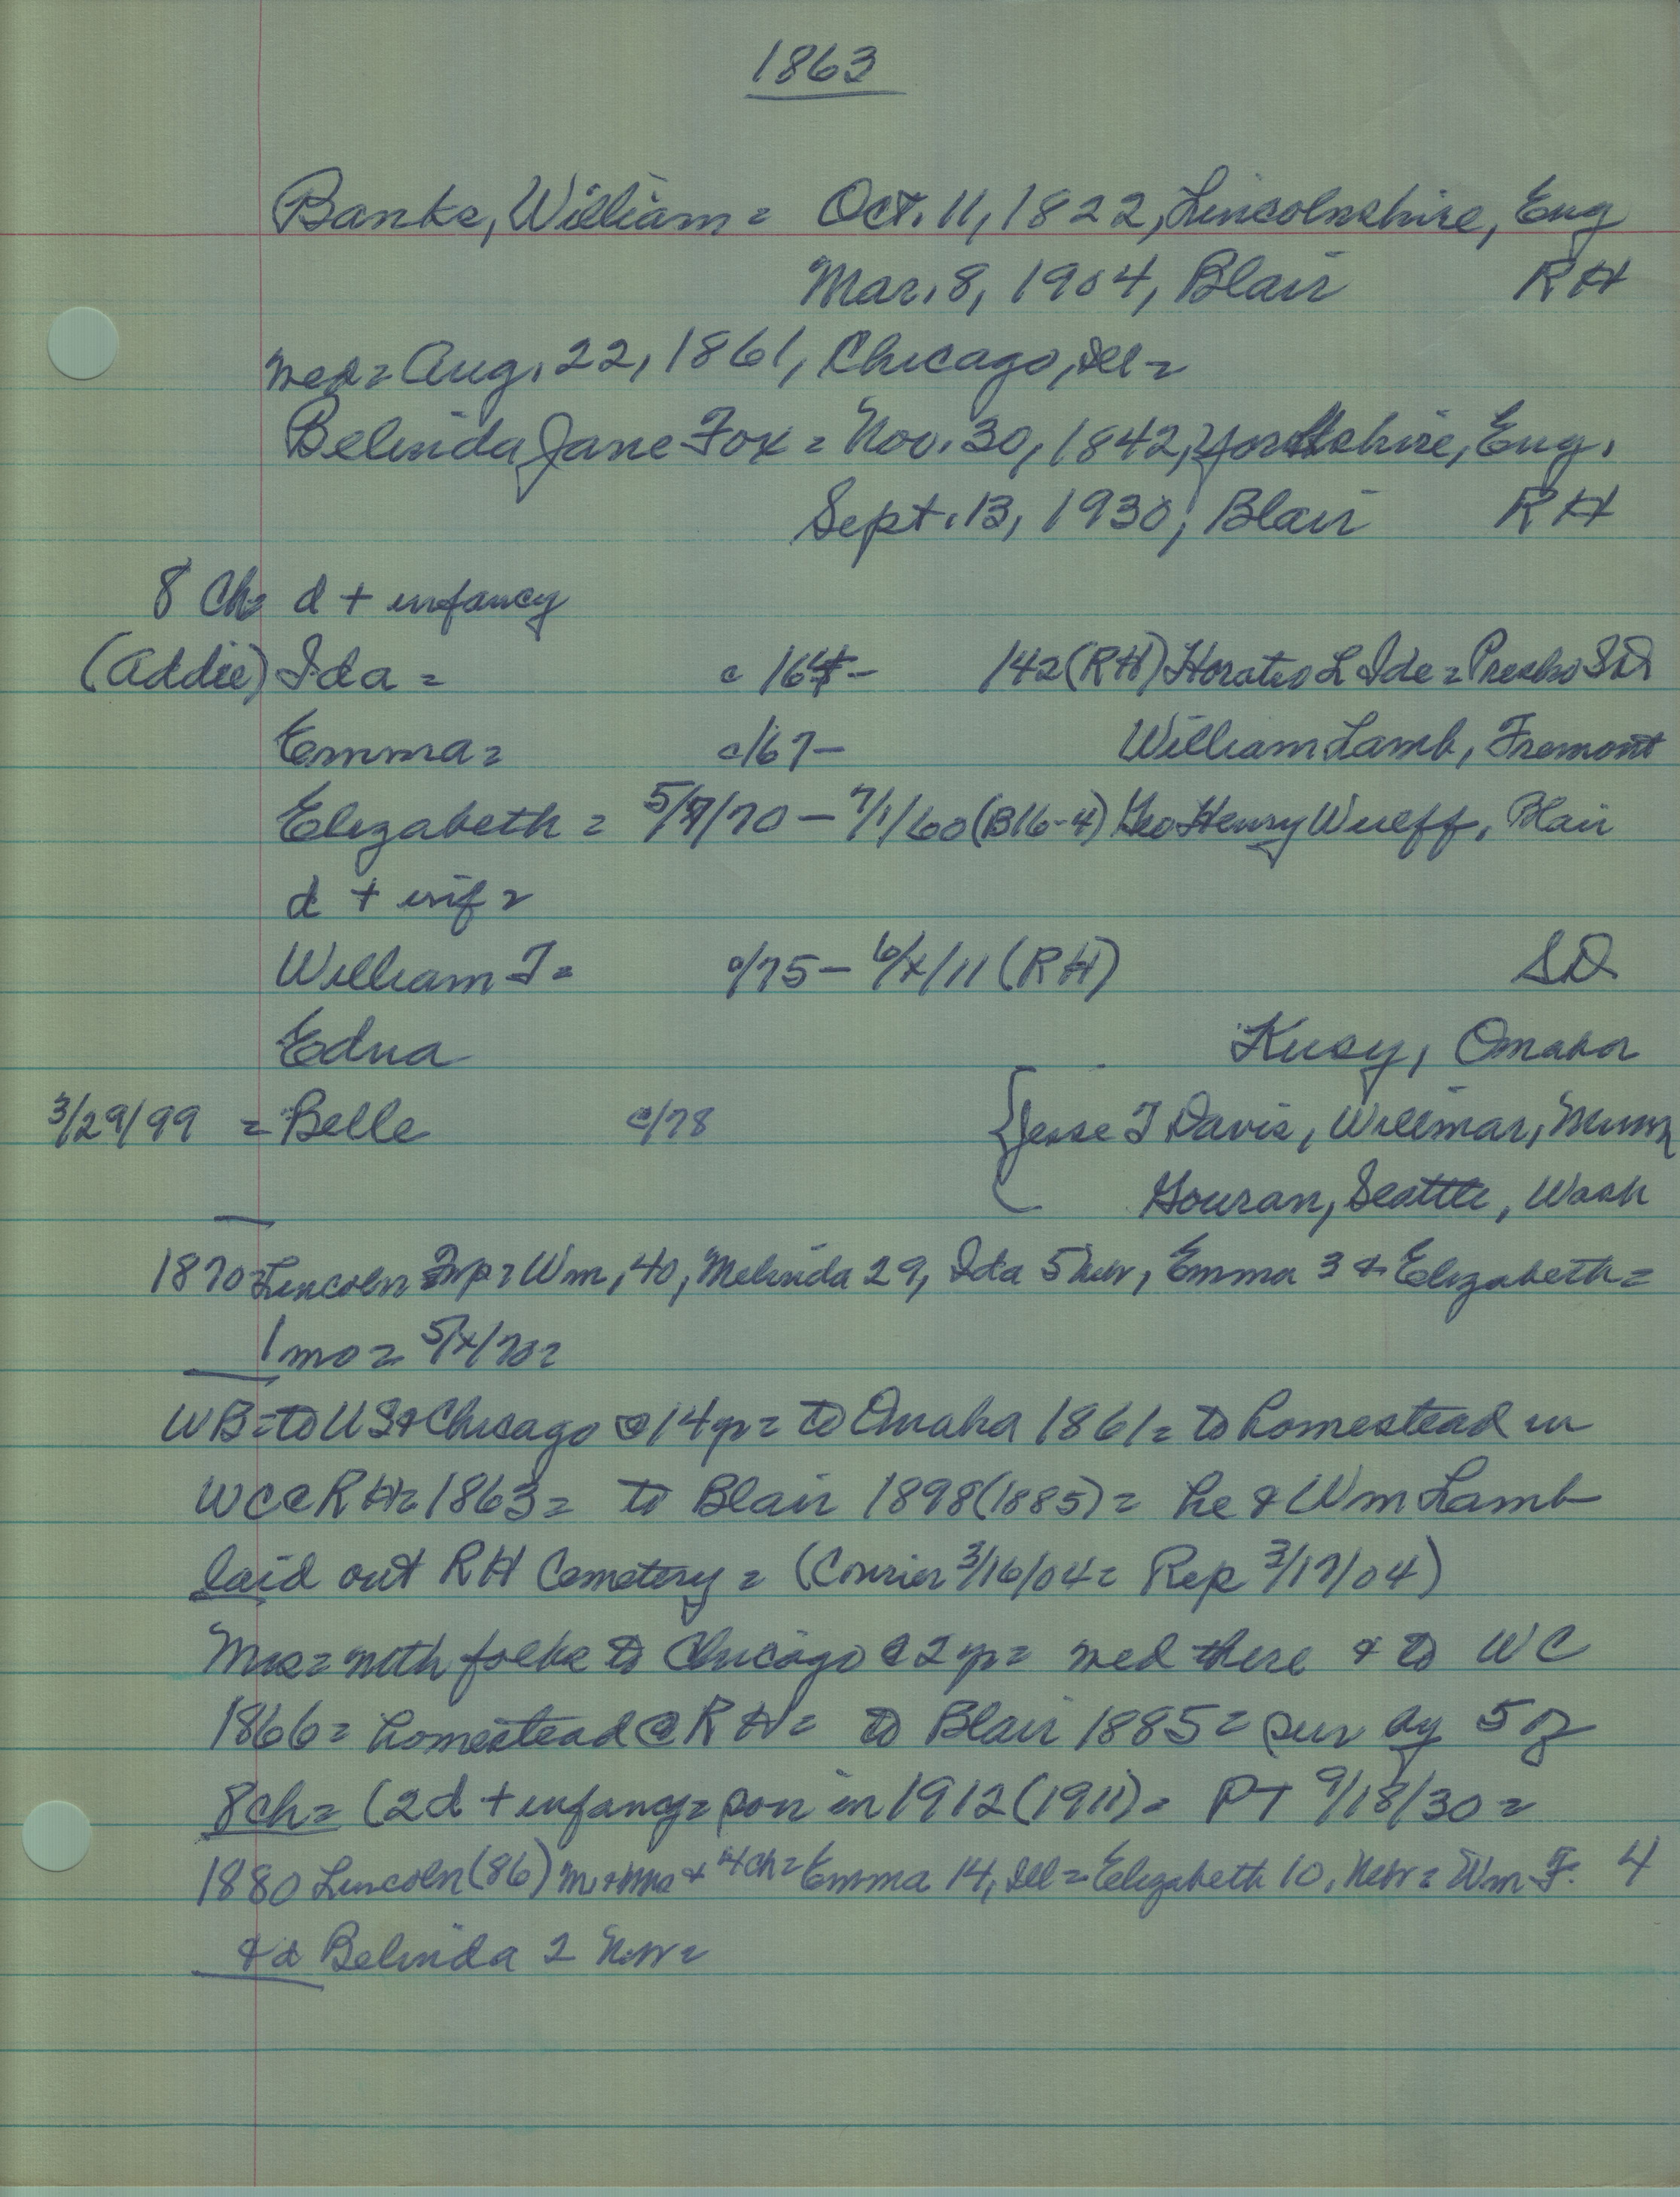 1863
Banks, William = Oct. 11, 1822, Lincolnshire, Eng
Mar. 8, 1904, Blair RH
med = Aug. 22, 1861, Chicago, Ill =
Belinda Jane Fox = Nov. 30, 1842, Yorkshire, Eng.
Sept. 13, 1930, Blair RH
8 Ch = d + infancy
(Addie) Ida = c/64 - 142 (RH) Horatio L Ide = Presho SD
Emma = c/67 - William Lamb, Fremont
Elizabeth = 5/7/70 - 7/1/60 (B16-4) Geo Henry Wulff, Blair
d + inf =
William F = c/75 - 6/x/11 (RH) SD
Edna Kusy, Omaha
3/29/99 = Belle c/78 { Jesse F Davis, Willmar, Minn
Gouran, Seattle, Wash
1870 = Lincoln Twp = Wm, 40, Melinda 29, Ida 5 Nebr, Emma 3 & Elizabeth =
1 mo = 5/x/70 =
WB = to US & Chicago @ 14 yr = to Omaha 1861 = to homestead in
WC @ RH = 1863 = to Blair 1898 (1885) = he & Wm Lamb
laid out RH Cemetery = (Courier 3/16/04 = Rep 3/17/04)
Mrs = with folks to Chicago @ 2 yr = med there & to WC
1866 = homestead @ RH = to Blair 1885 = sur by 5 of
8 ch = (2 d + infancy = son in 1912 (1911) = PT 9/18/30 =
1880 Lincoln (86) Mr & Mrs & 4 ch = Emma 14, Ill = Elizabeth 10, Nebr = Wm F. 4
& d Belinda 2 Nebr =